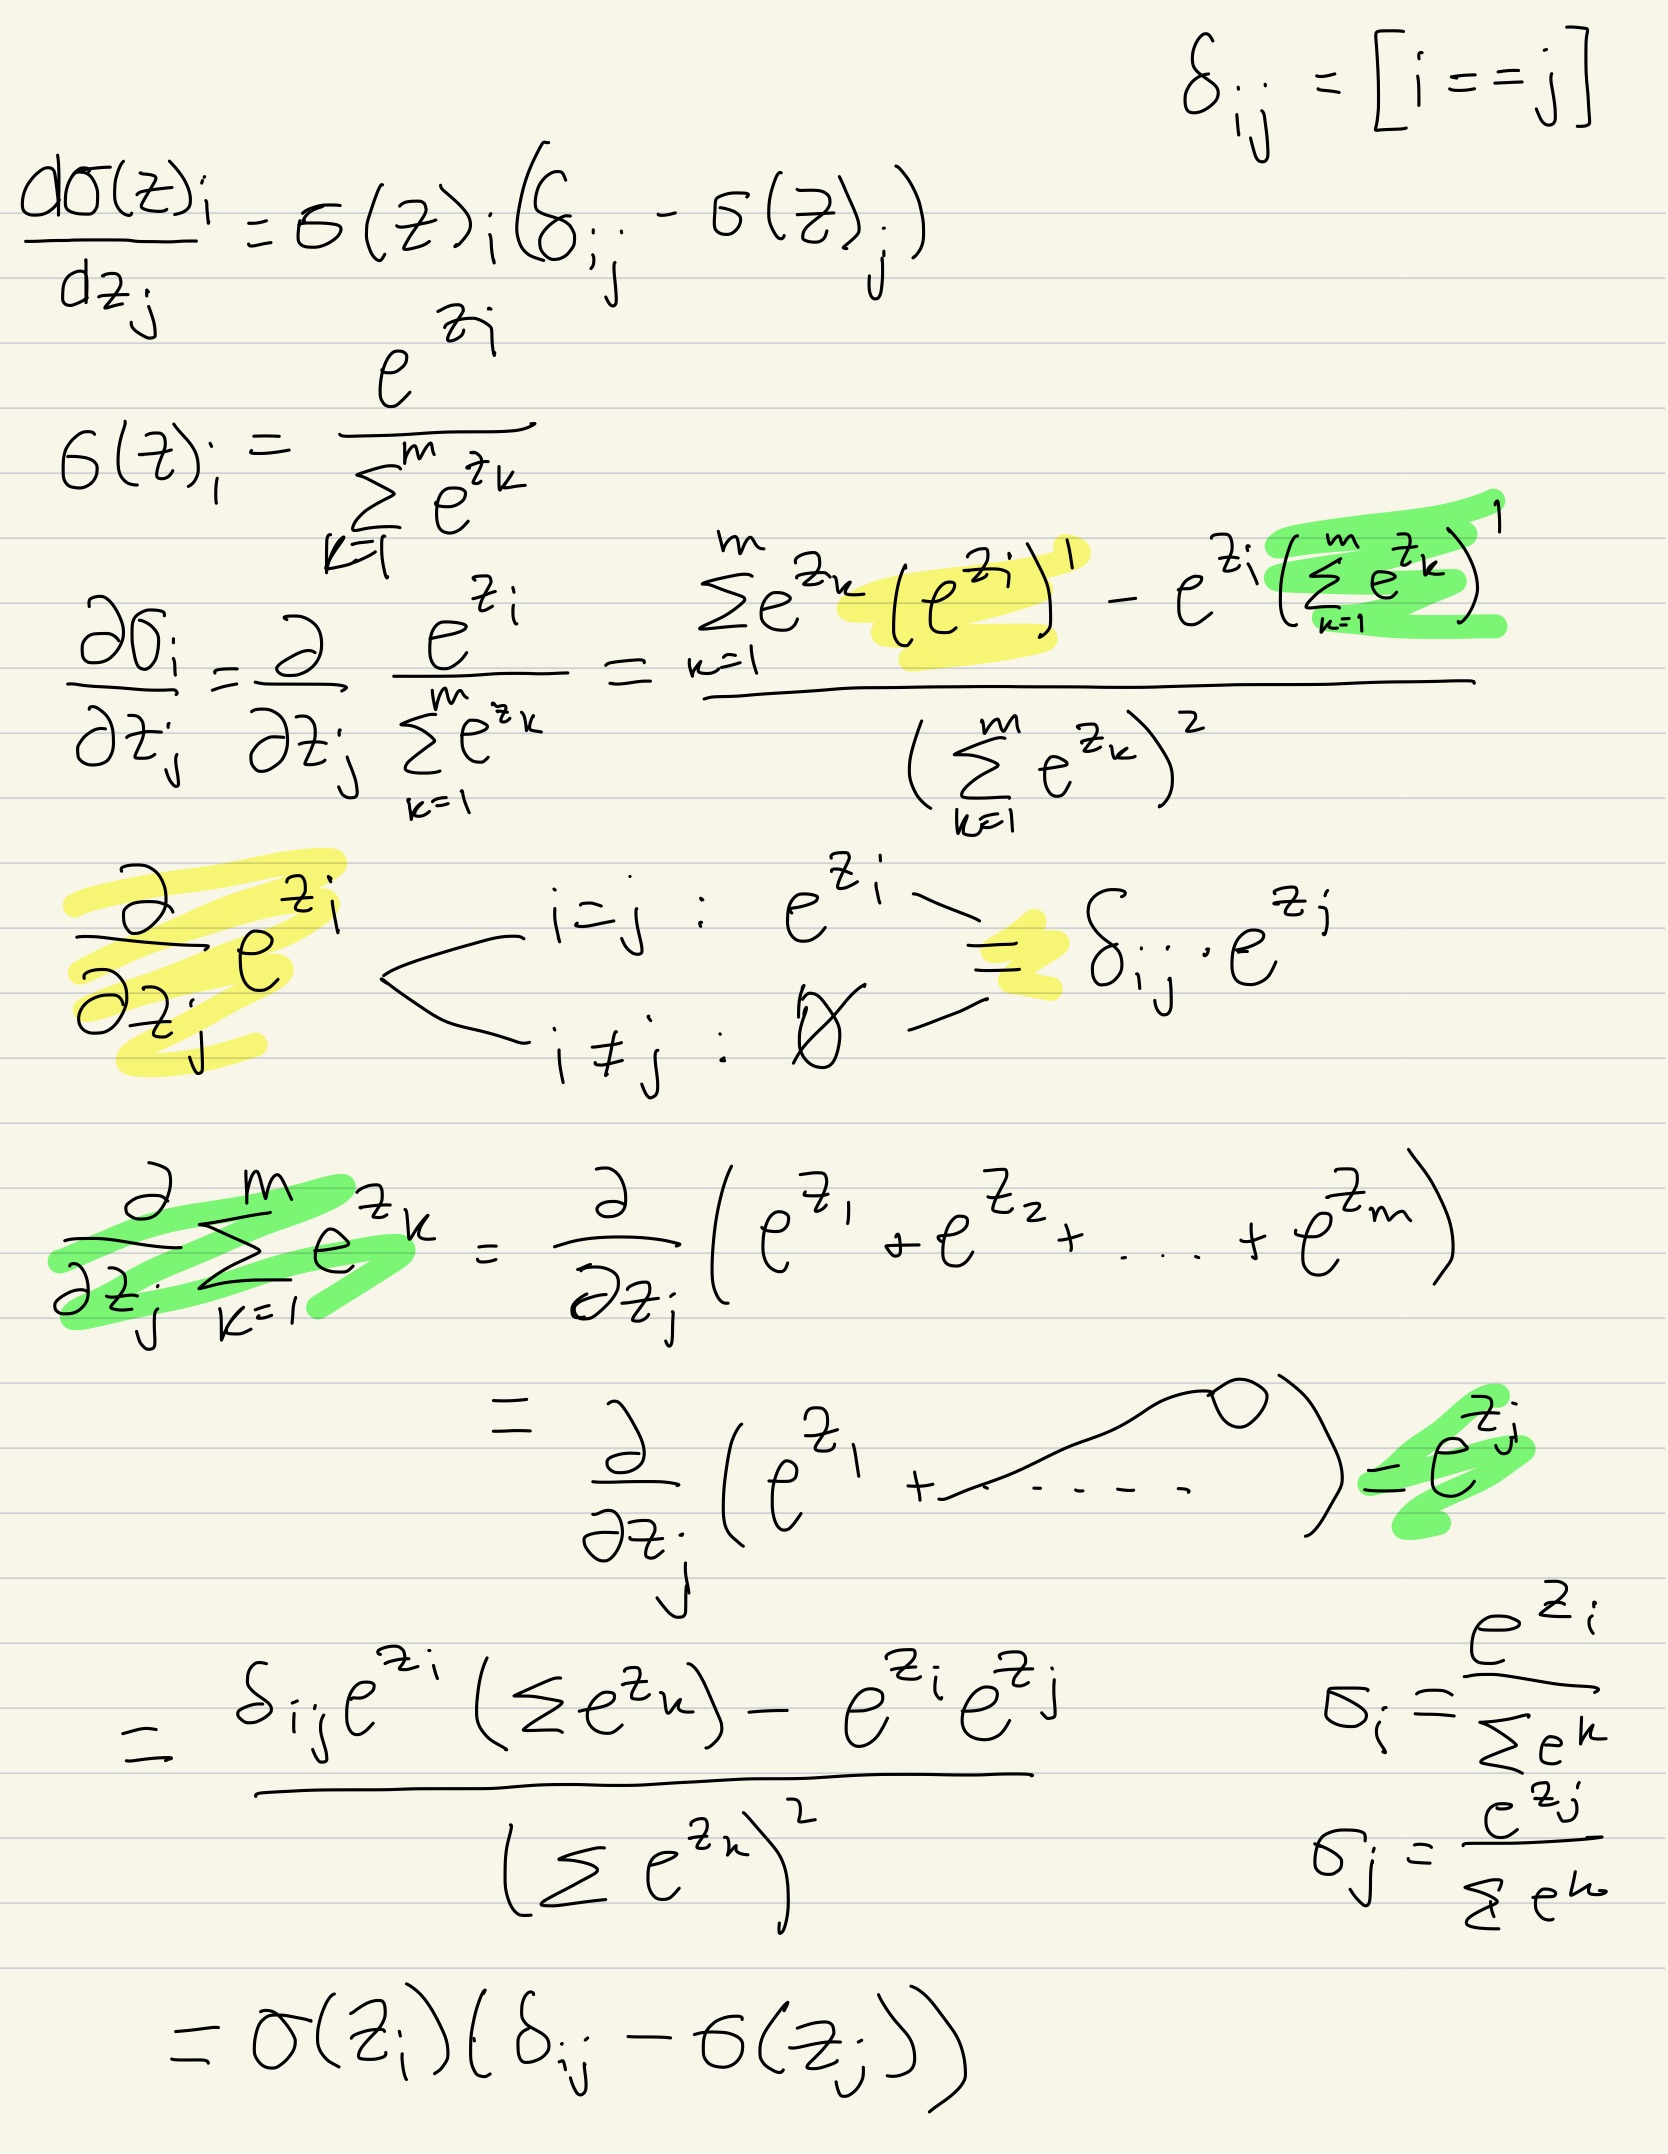 δ_ij = [i == j]
dσ(z)_i / dz_j = σ(z)_i (δ_ij - σ(z)_j)
σ(z)_i = e^{z_i} / ∑_{k=1}^{m} e^{z_k}
∂σ_i / ∂z_j = ∂/∂z_j e^{z_i} / ∑_{k=1}^{m} e^{z_k} = (∑_{k=1}^{m} e^{z_k} (e^{z_i})' - e^{z_i} (∑_{k=1}^{m} e^{z_k})') / (∑_{k=1}^{m} e^{z_k})^2
∂/∂z_j e^{z_i} < i=j : e^{z_i} = δ_ij · e^{z_j}
i≠j : 0
∂/∂z_j ∑_{k=1}^{m} e^{z_k} = ∂/∂z_j (e^{z_1} + e^{z_2} + .... + e^{z_m})
= ∂/∂z_j (e^{z_1} + ...... 0) = e^{z_j}
= (δ_ij e^{z_i} (∑ e^{z_k}) - e^{z_i} e^{z_j}) / (∑ e^{z_k})^2
σ_i = e^{z_i} / ∑ e^k
σ_j = e^{z_j} / ∑ e^k
= σ(z_i)(δ_ij - σ(z_j))